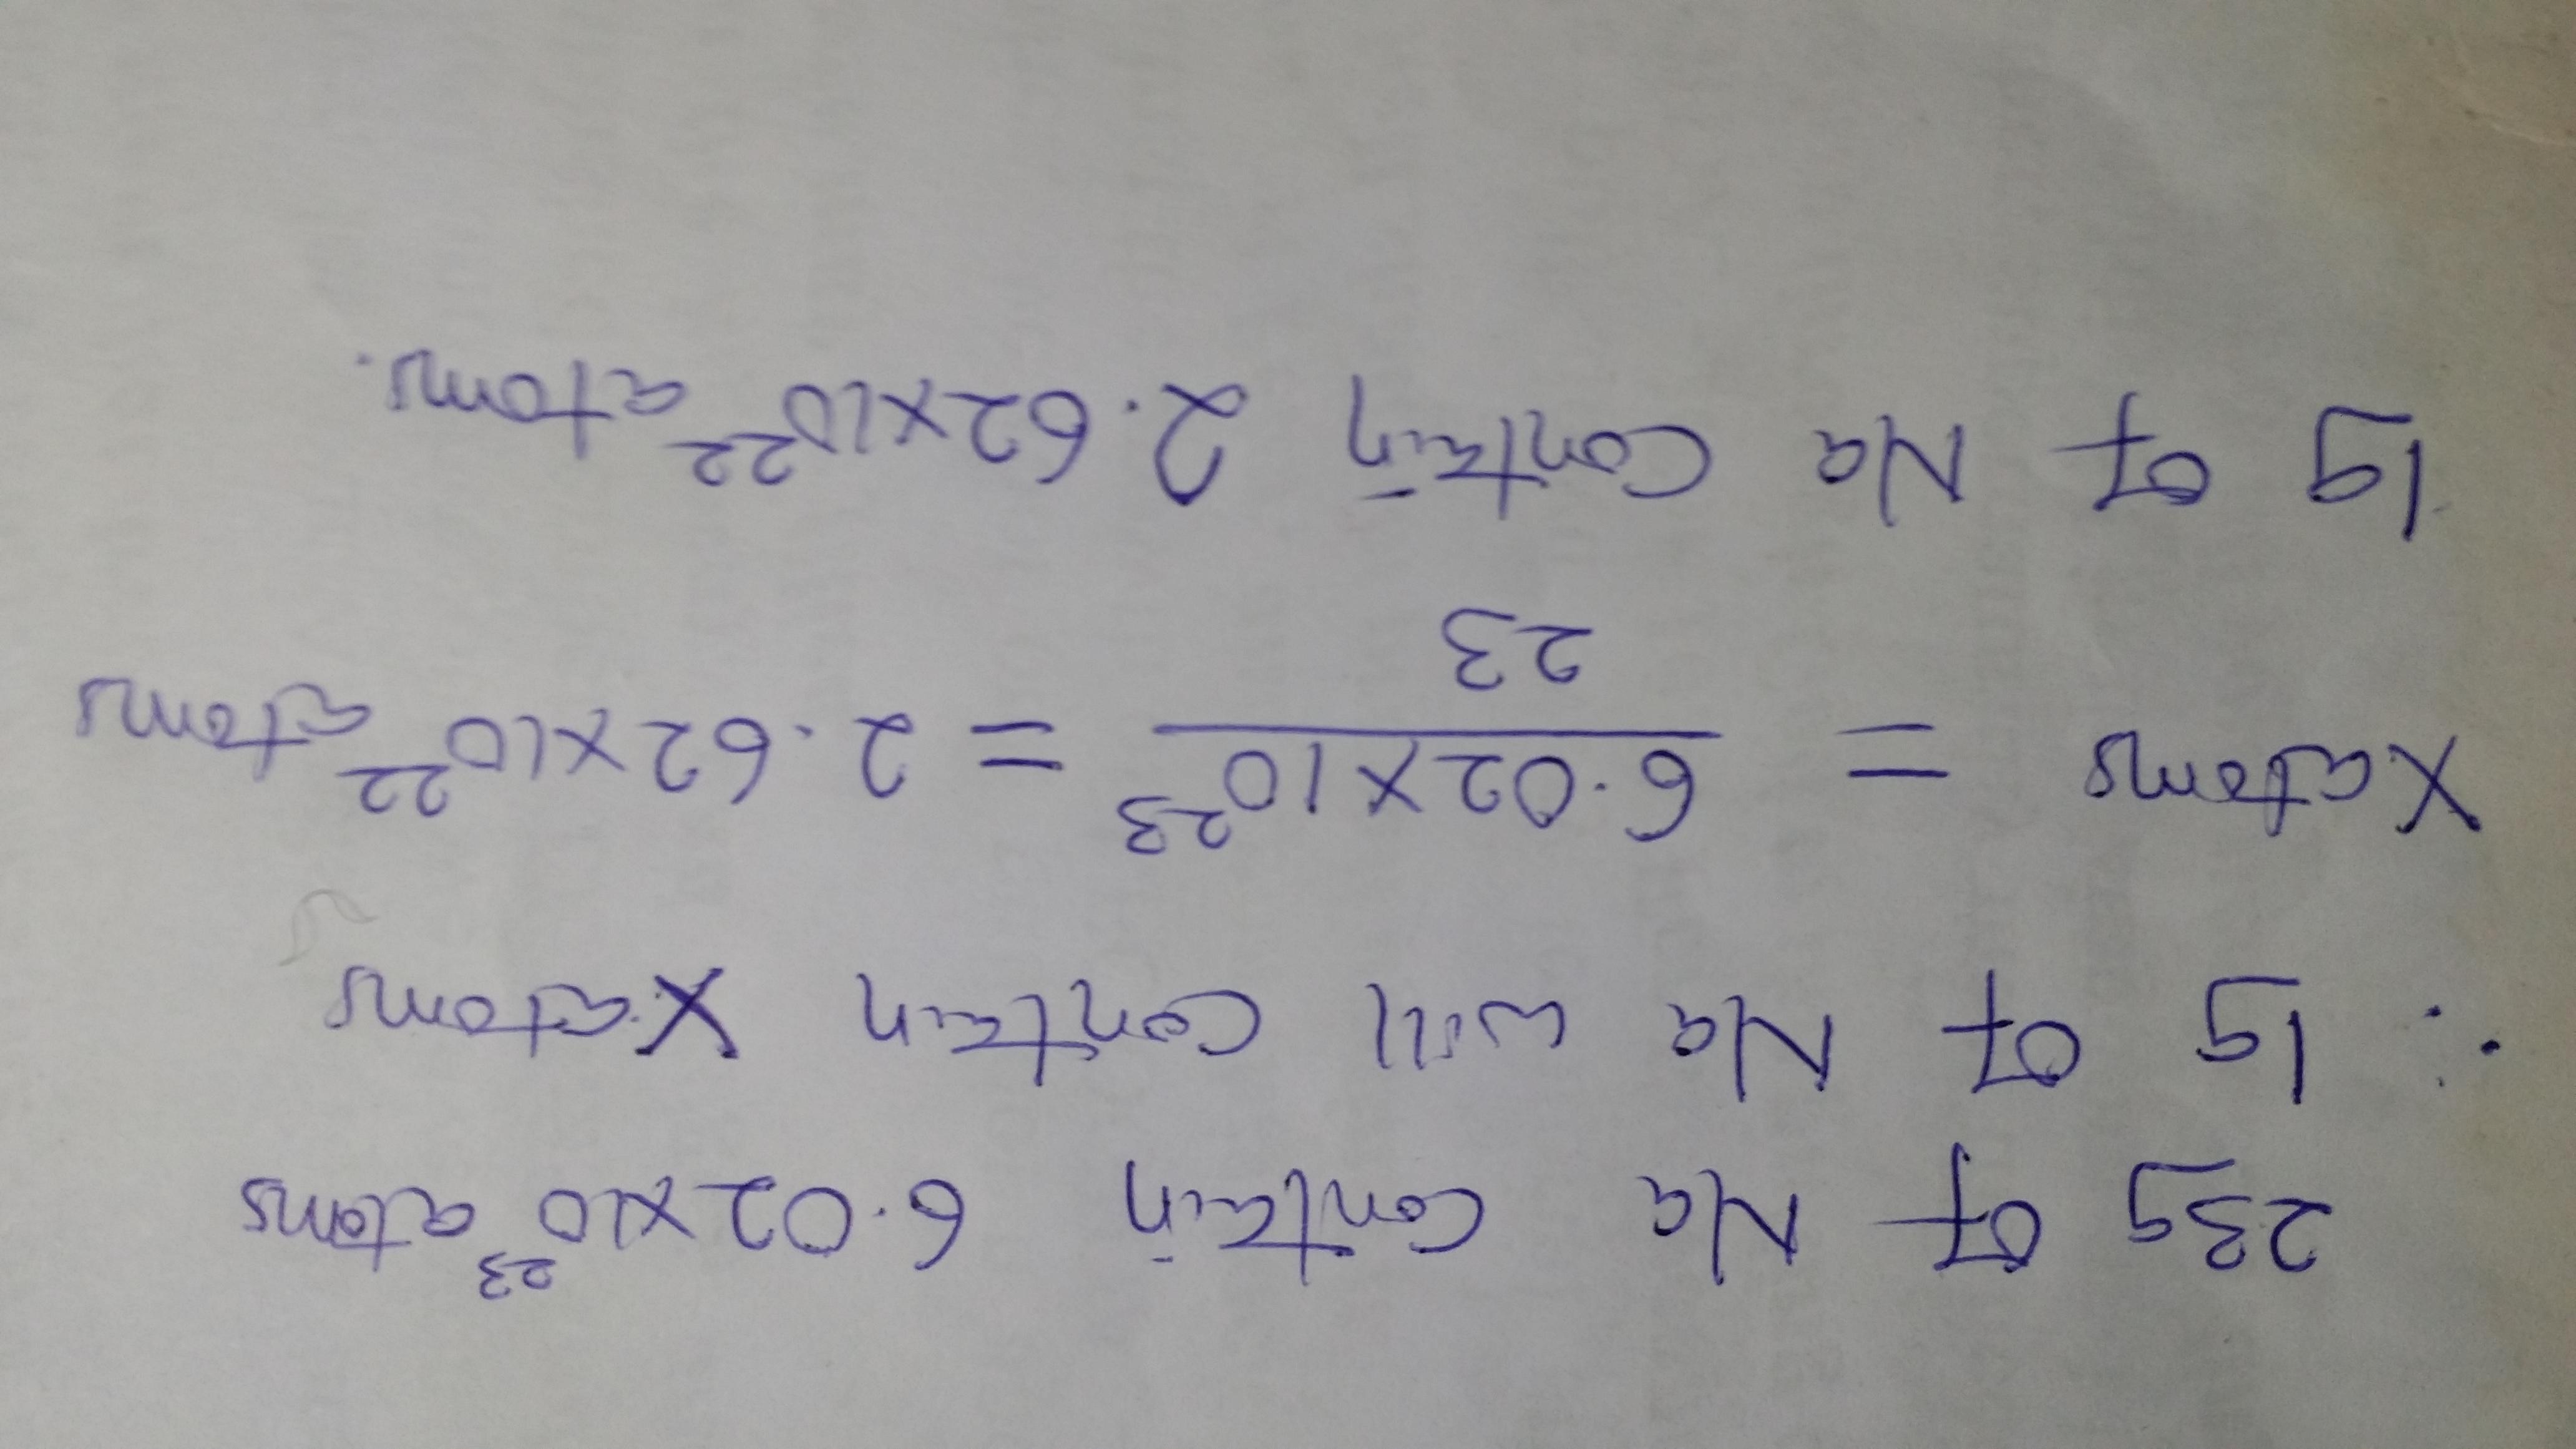 23g of Na contain 6.02x10²³ atoms
∴ 1g of Na will contain X atoms
X atoms = 6.02x10²³ / 23 = 2.62x10²² atoms
1g of Na contain 2.62x10²² atoms.